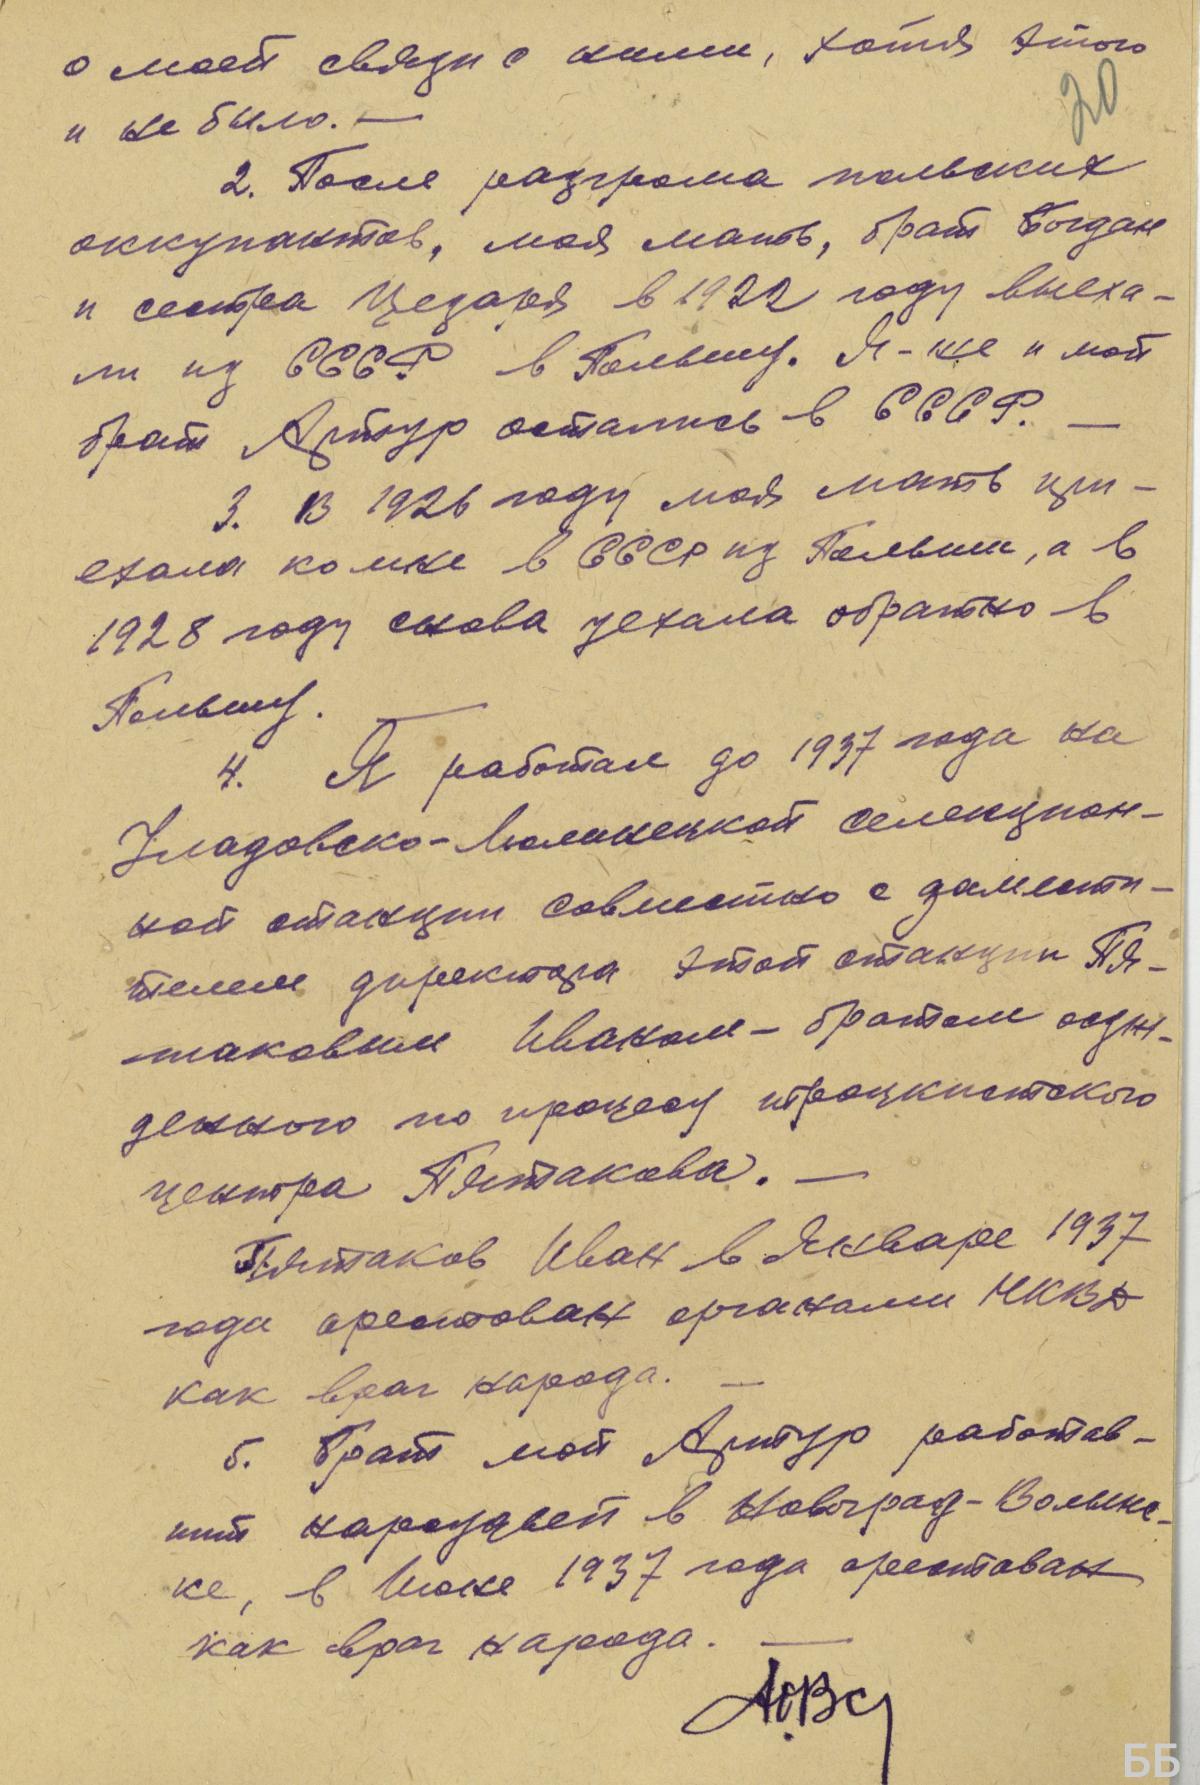 о моей связи с ними, хотя этого
20
и не было. —
2. После разгрома польских
оккупантов, моя мать, брат Богдан
и сестра Цезаря в 1922 году выеха-
ли из СССР в Польшу. Я-же и мой
брат Артур остались в СССР. —
3. В 1926 году моя мать при-
ехала ко мне в СССР из Польши, а в
1928 году снова уехала обратно в
Польшу. —
4. Я работал до 1937 года на
Уладовско-Люлинецкой селекцион-
ной станции совместно с замести-
телем директора этой станции Пя-
таковым Иваном - братом осуж-
денного по процесу троцкистского
центра Пятакова. —
Пятаков Иван в Январе 1937
года арестован органами НКВД
как враг народа. —
5. Брат мой Артур работав-
ший нарсудьей в Новоград-Волынс-
ке, в Июне 1937 года арестован
как враг народа. —
ББ